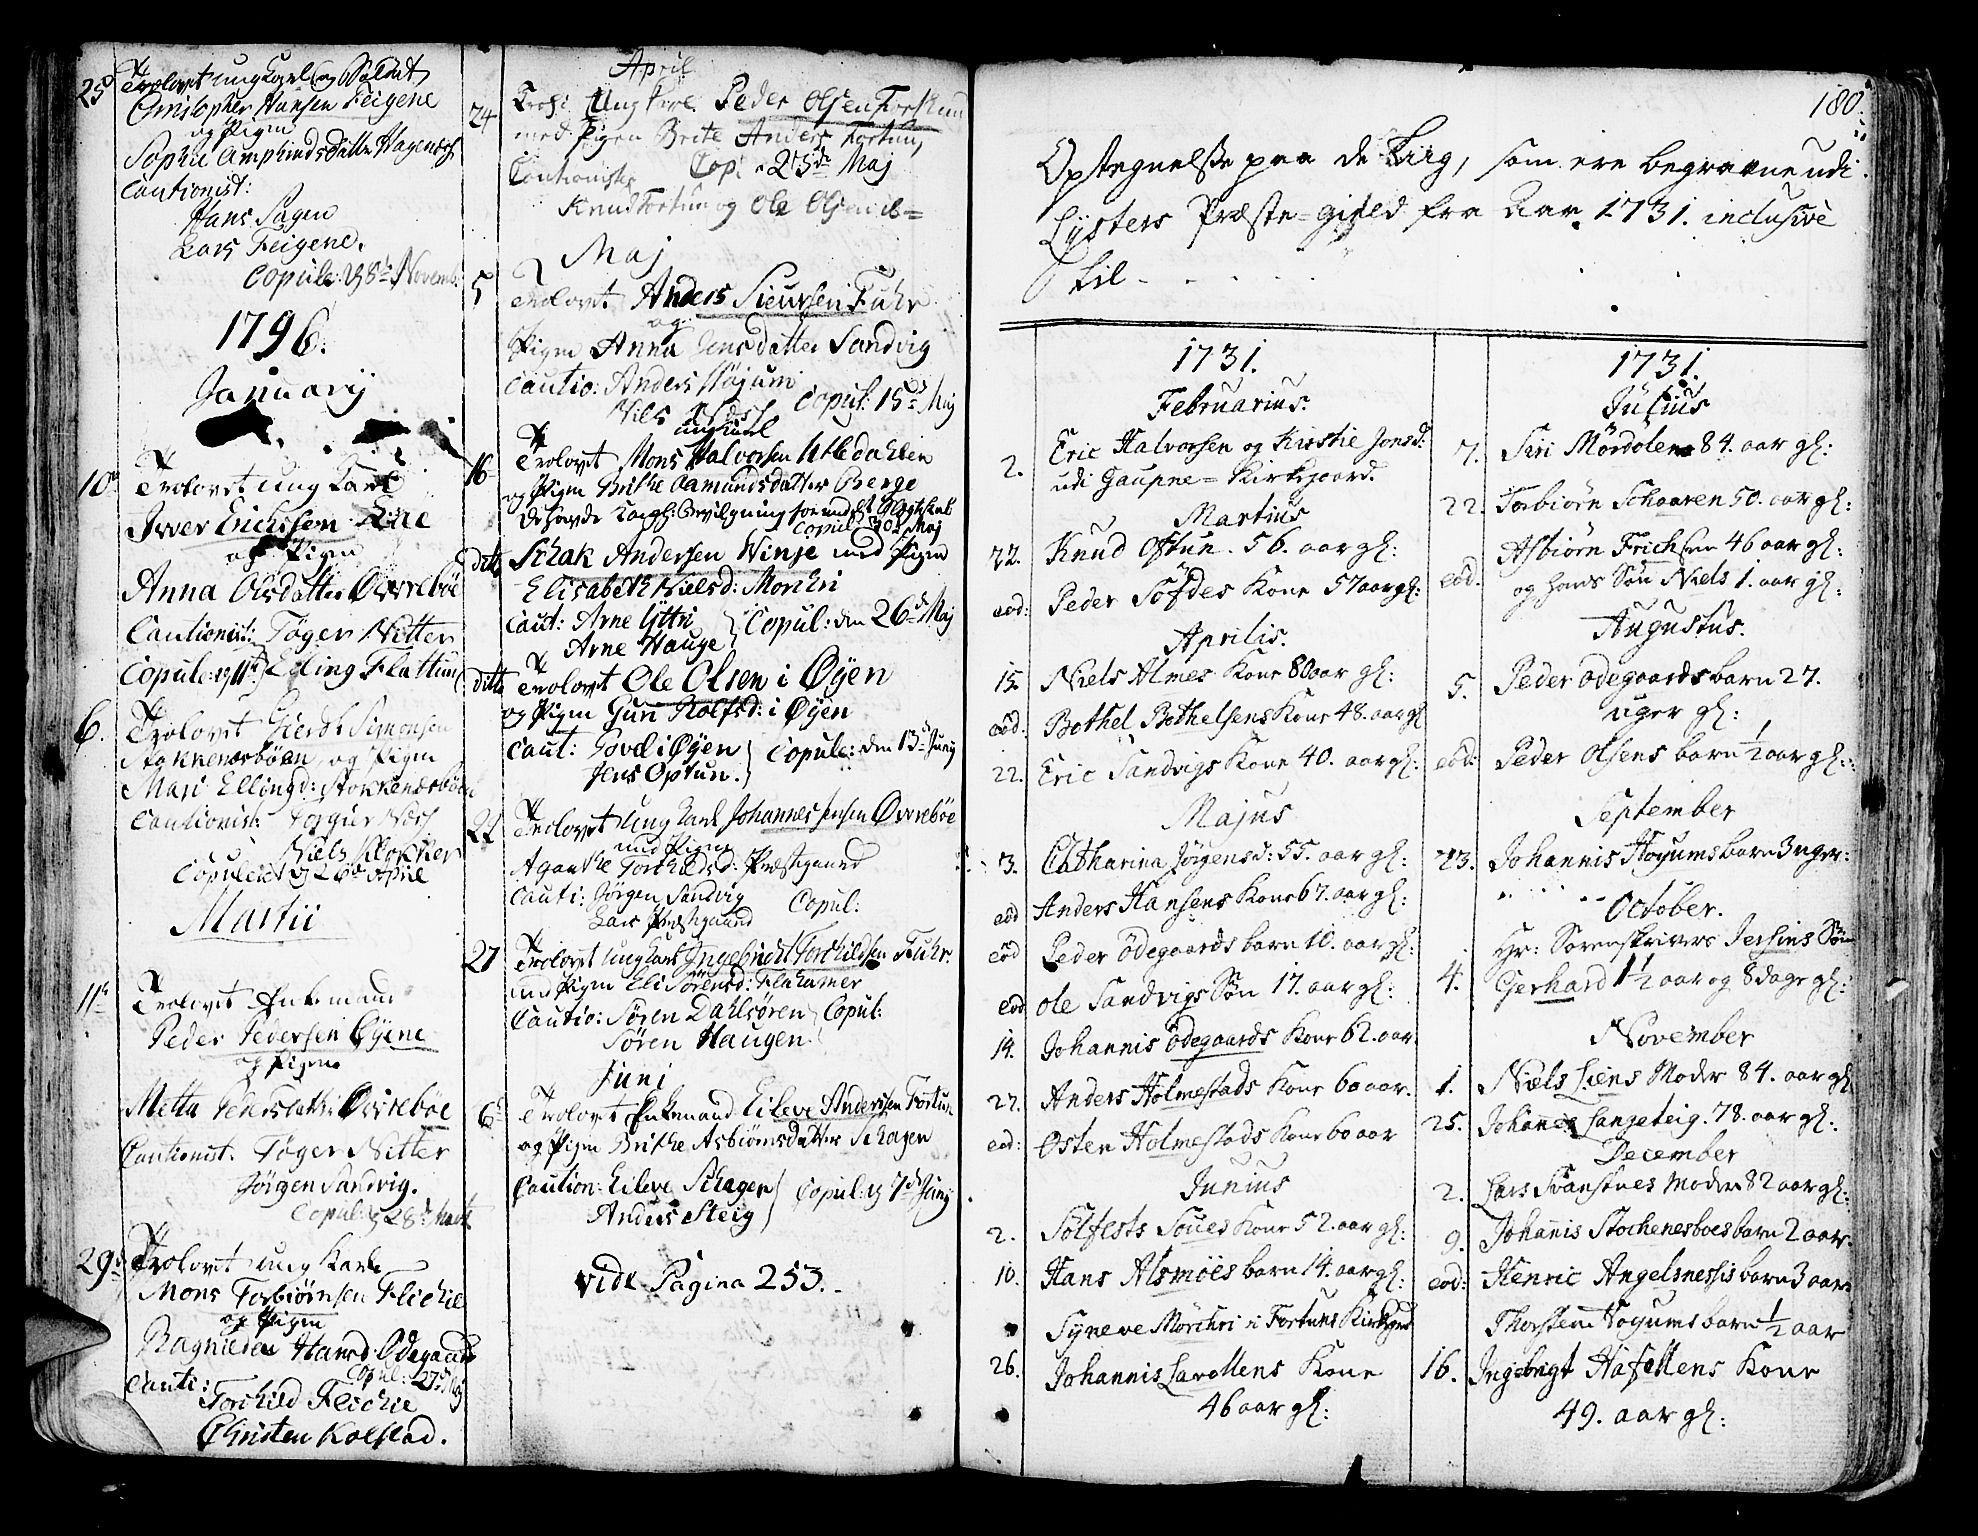 25 Trolovet ung Karl og Soldat
Christopher Hansen Feigene
og Pigen
Sophie Amphindsdatter
Cautionist:
Hans Sagen
Lars Feigene.
Copule: 8 Novemb:
1796.
Januarij
10 Trolovet ung Karl
Iwer Ericksen
og Pigen
Anna Olsdatter Øvrebøe
Cautionist: Tøger Nitter
Copule: Elling Flattum
6. Trolovet Gierdt Simonsen
Stokkenæsbøen og Pigen
Mari Ellingd: Stokkenæsbøen
Cautionist: Torgier Næss
Niels Klokker
Copuleret 26 April
Martii
11 Trolovet Enkemand
Peder Pedersen Øyene
og Pigen
Metta Pedersdatter Øvrebøe
Cautionist. Tøger Nitter
Jørgen Sandvig.
Copul: 28 Marti
29 Trolovet ung Karl
Mons Torbiørnsen Flickie
og Pigen
Ragnilda Hansd: Ødegaard
Copul: 27 Maj
Cauti: Torchild Flickie
Christen Kolstad.
April
24 Trol: Ung Karl Peder Olsen Fortun
med Pigen Brite Anders Fortun
Cautionister Cop: 25de Maj
Knud Fortun og Ole Olsen ib=
Maj
5 Trolovet Anders Siewrsen Fuhr
og
Pigen Anna Jensdatter Sandvig
Cautio: Anders Højum
Niels Copul: 15 Maj
ungkarl
16 Trolovet Mons Halvorsen Utledahlen
og Pigen Brithe Aamundsdatter Berge
Copul: 30 Maj
ditto Schak Andersen Winje med Pigen
Elisabeth Nielsd: Morchri
Caut: Arne Yttri
Arne Hauge } Copul: den 26 Maj
ditto Trolovet Ole Olsen i Øyen
og Pigen Guri Rolfsd: i Øyen
Caut: Povel i Øyen
Jens Optun. } Copule: den 13 Junij
22 Trolovet Ung Karl Johannes Jensen Øvrebøe
med Pigen
Aganthe Torchildsd: Præstgaard
Cauti: Jørgen Sandvig
Lars Præstgaard Copul:
27 Trolovet ung Karl Ingebricht Torchildsen Fuhr.
med Pigen Eli Sørensd: Flahamer
Cautio: Søren Dahlsøren } Copul:
Søren Haugen.
Juni
6 Trolovet Enkemand Eileve Andersen Fortun
og Pigen Brithe Asbiørnsdatter Schagen
Caution: Eileve Schagen
Anders Steig } Copul: 7 Junij
vide Pagina 253.
180.
Optegnelsse paa de Liig, som ere begravne udi
Lysters Præste-gield fra Aar 1731. inclusive
til - - - -
1731.
Februarius.
2. Eric Halvorsen og Kirstie Jonsd:
udi Gaupne= Kirkegaard.
Martius
22. Knud Oftun. 56. aar gl:
eod: Peder Søfdes Kone 57 aar gl:
Aprilis.
15. Niels Almes Kone 80 aar gl:
eod. Bothel Bothelsens Kone 48. aar gl
22. Eric Sandvigs Kone 40. aar gl:
Majus
3. Chatharina Jørgensd: 55. aar gl:
eod Anders Hansens Kone 67. aar gl:
eod Peder Ødegaards barn 10. aar gl:
eod Ole Sandvigs Søn 17. aar gl:
14. Johannis Ødegaards Kone 62. aar.
27. Anders Holmestads Kone 60 aar.
eod: Osten Holmestads Kone 60 aar
Junius
2. Sølfests Soues Kone 52. aar gl:
10. Hans Alsmoes barn 14. aar gl:
Syneve Mørchri i Fortuns Kirkegrd
26. Johannis Lavollens Kone
46 aar gl:
1731.
Julius
7. Siri Mordolen 84. aar gl:
22. Torbiørn Schaaren 50. aar gl:
eod. Asbiørn Frichsen 46 aar gl:
og hans Søn Niels 1. aar gl:
Augustus.
5. Peder Ødegaards barn 27.
uger gl:
eod: Peder Olsens barn ½ aar gl:
September
23. Johannis Høyums barn 3 uger:
October.
Hr: Sorenskriver Jersins Søn
4. Gerhard 1½ aar og 8 dage gl:
November
1. Niels Liens Moder 84. aar gl
25. Johanes Langeteig. 78. aar gl:
December
2. Lars Svansnes Moder 82 aar gl:
9. Johannis Stochenesboes barn 2 aar.
eod: Henric Angelsnessis barn 3 aar.
Thorsten Høyums barn ½ aar
16. Ingebrigt Hafellens Kone
49. aar gl: